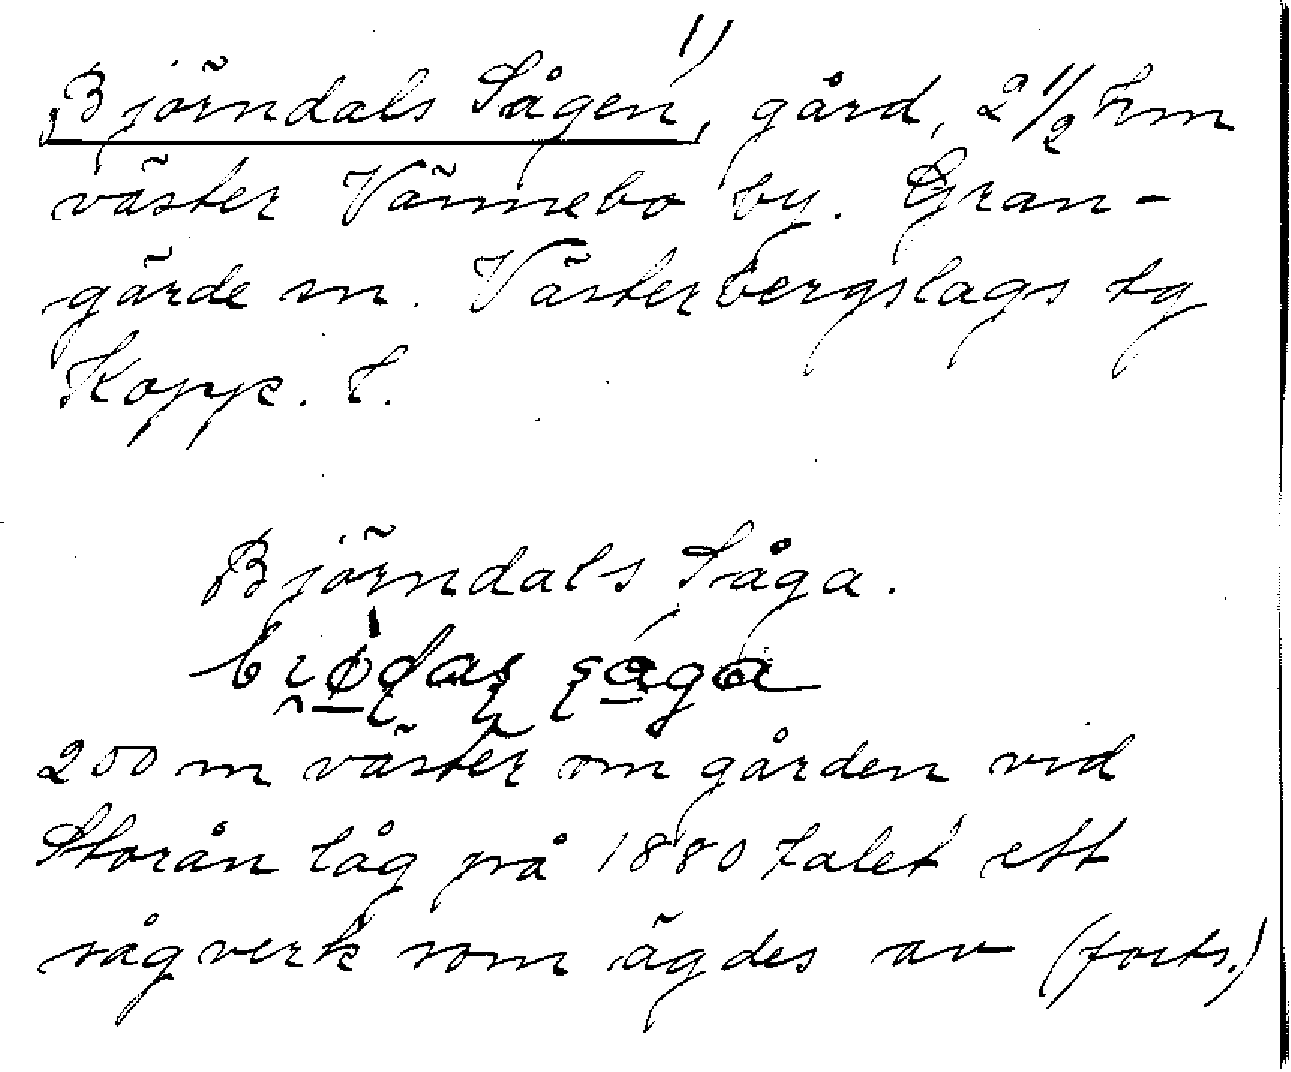 Björndals Sågen, 1) gård, 2 1/2 km
väster Vännebo by. Gran-
gärde sn. Västerbergslags tg
Kopp. l.
Björndals Såga.
200 m väster om gården vid
Storån låg på 1880 talet ett
sågverk som ägdes av (forts.)